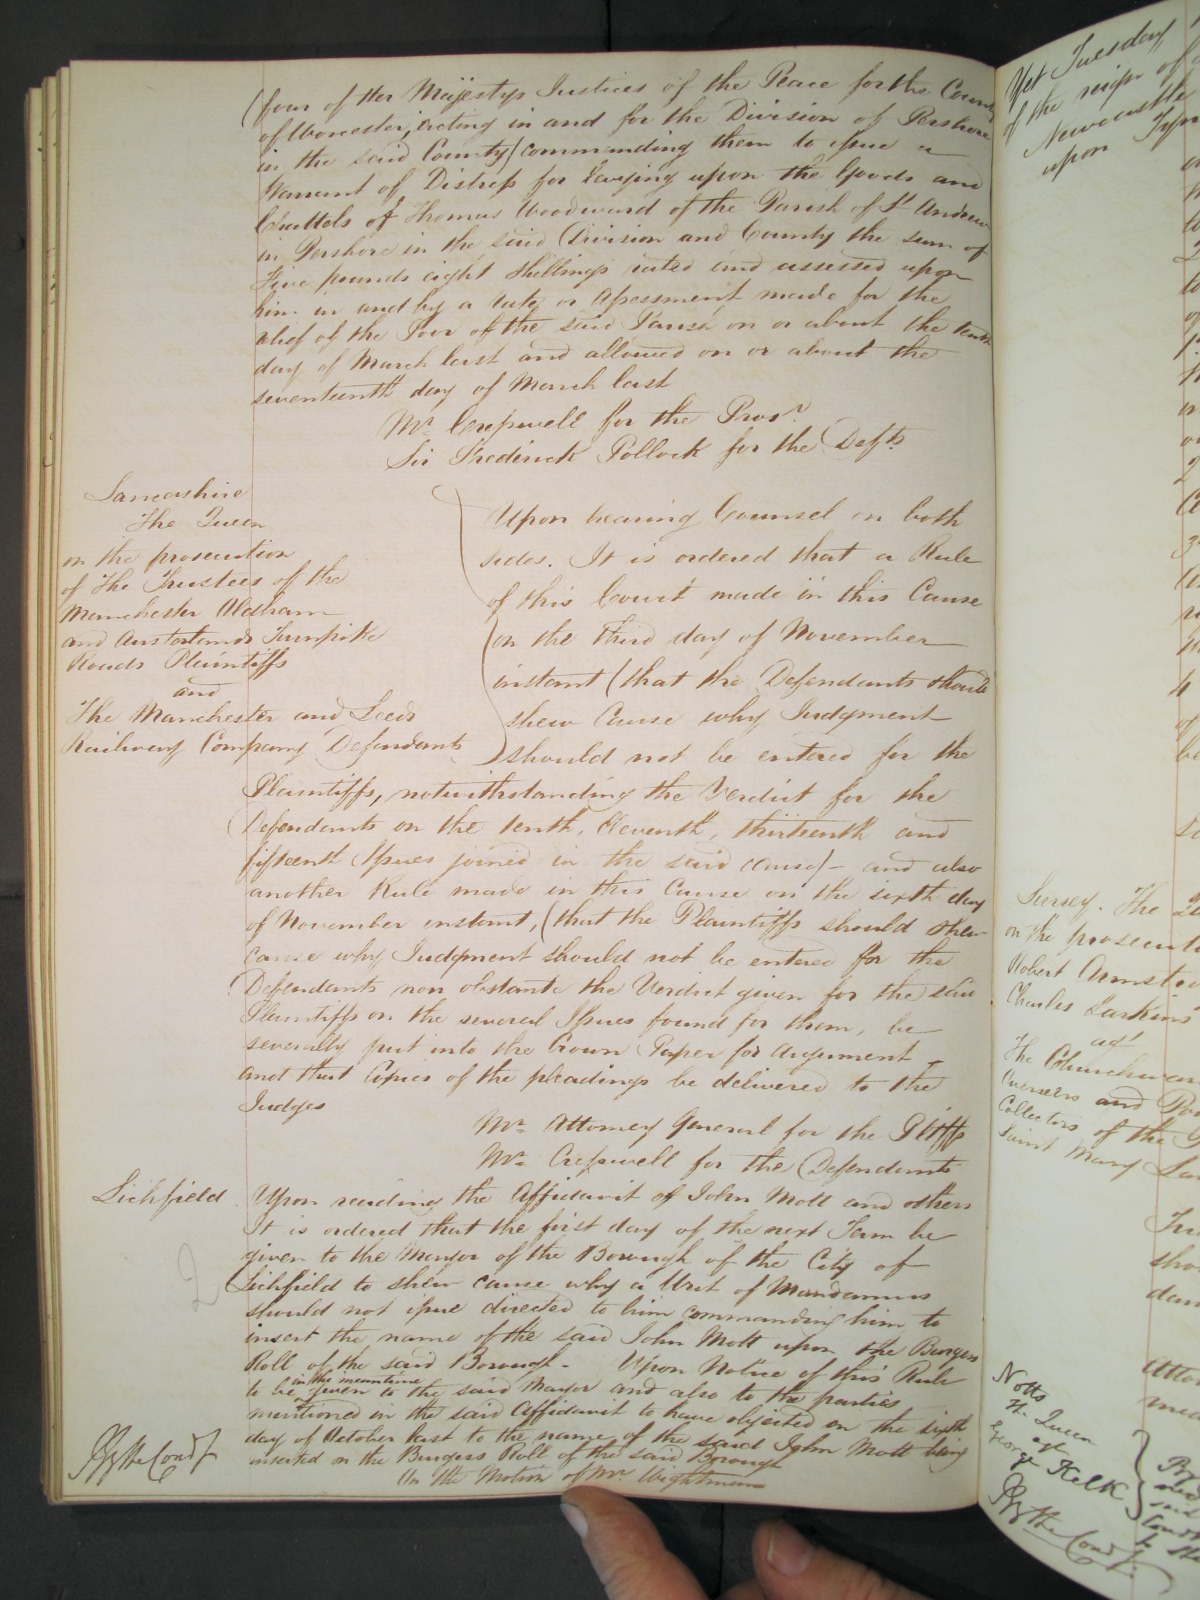 (four of Her Majestys Justices of the Peace for the County
of Worcester, acting in and for the Division of Pershore
in the said County) commanding them to issue a
Warrant of Distress for levying upon the Goods and
Chattels of Thomas Woodward of the Parish of St Andrew
in Pershore in the said Division and County the sum of
Five pounds eight Shillings rated and assessed upon
him in and by a rate or Assessment made for the
relief of the Poor of the said Parish on or about the tenth
day of March last and allowed on or about the
seventeenth day of March last
Mr Cresswell for the Prosr
Sir Frederick Pollock for the Defts
Lancashire
The Queen
on the prosecution
of The Trustees of the
Manchester Oldham
and Austerlands Turnpike
Roads Plaintiffs
and
The Manchester and Leeds
Railway Company Defendants
Upon hearing Counsel on both
sides. It is ordered that a Rule
of this Court made in this Cause
on the third day of November
instant (that the Defendants should
shew Cause why Judgment
should not be entered for the
Plaintiffs, notwithstanding the Verdict for the
Defendants on the tenth, Eleventh, thirteenth and
fifteenth Issues joined in the said Cause) and also
another Rule made in this Cause on the sixth day
of November instant, (that the Plaintiffs should shew
cause why Judgment should not be entered for the
Defendants non obstante the Verdict given for the said
Plaintiffs on the several Issues found for them, be
severally put into the Crown Paper for Argument
and that Copies of the pleadings be delivered to the
Judges
Mr Attorney General for the Pltffs
Mr Cresswell for the Defendants
Lichfield
Upon reading the Affidavit of John Mott and others
It is ordered that the first day of the next Term be
given to the Mayor of the Borough of the City of
Lichfield to shew cause why a Writ of Mandamus
should not issue directed to him commanding him to
insert the name of the said John Mott upon the Burgess
Roll of the said Borough. Upon Notice of this Rule
in the meantime
to be given to the said Mayor and also to the parties
mentioned in the said Affidavit to have objected on the sixth
day of October last to the name of the said John Mott being
inserted on the Burgess Roll of the said Borough
On the Motion of Mr Wightman
By the Court
Yet Tuesday
of the reign of
Newcastle
upon Tyne
Surrey. The
on the prosecution
Robert Armstrong
Charles Larkins
agt
The Churchwardens
Overseers and
Collectors of the
Saint Mary
Notts
The Queen
agt
George Kelk
By the Court